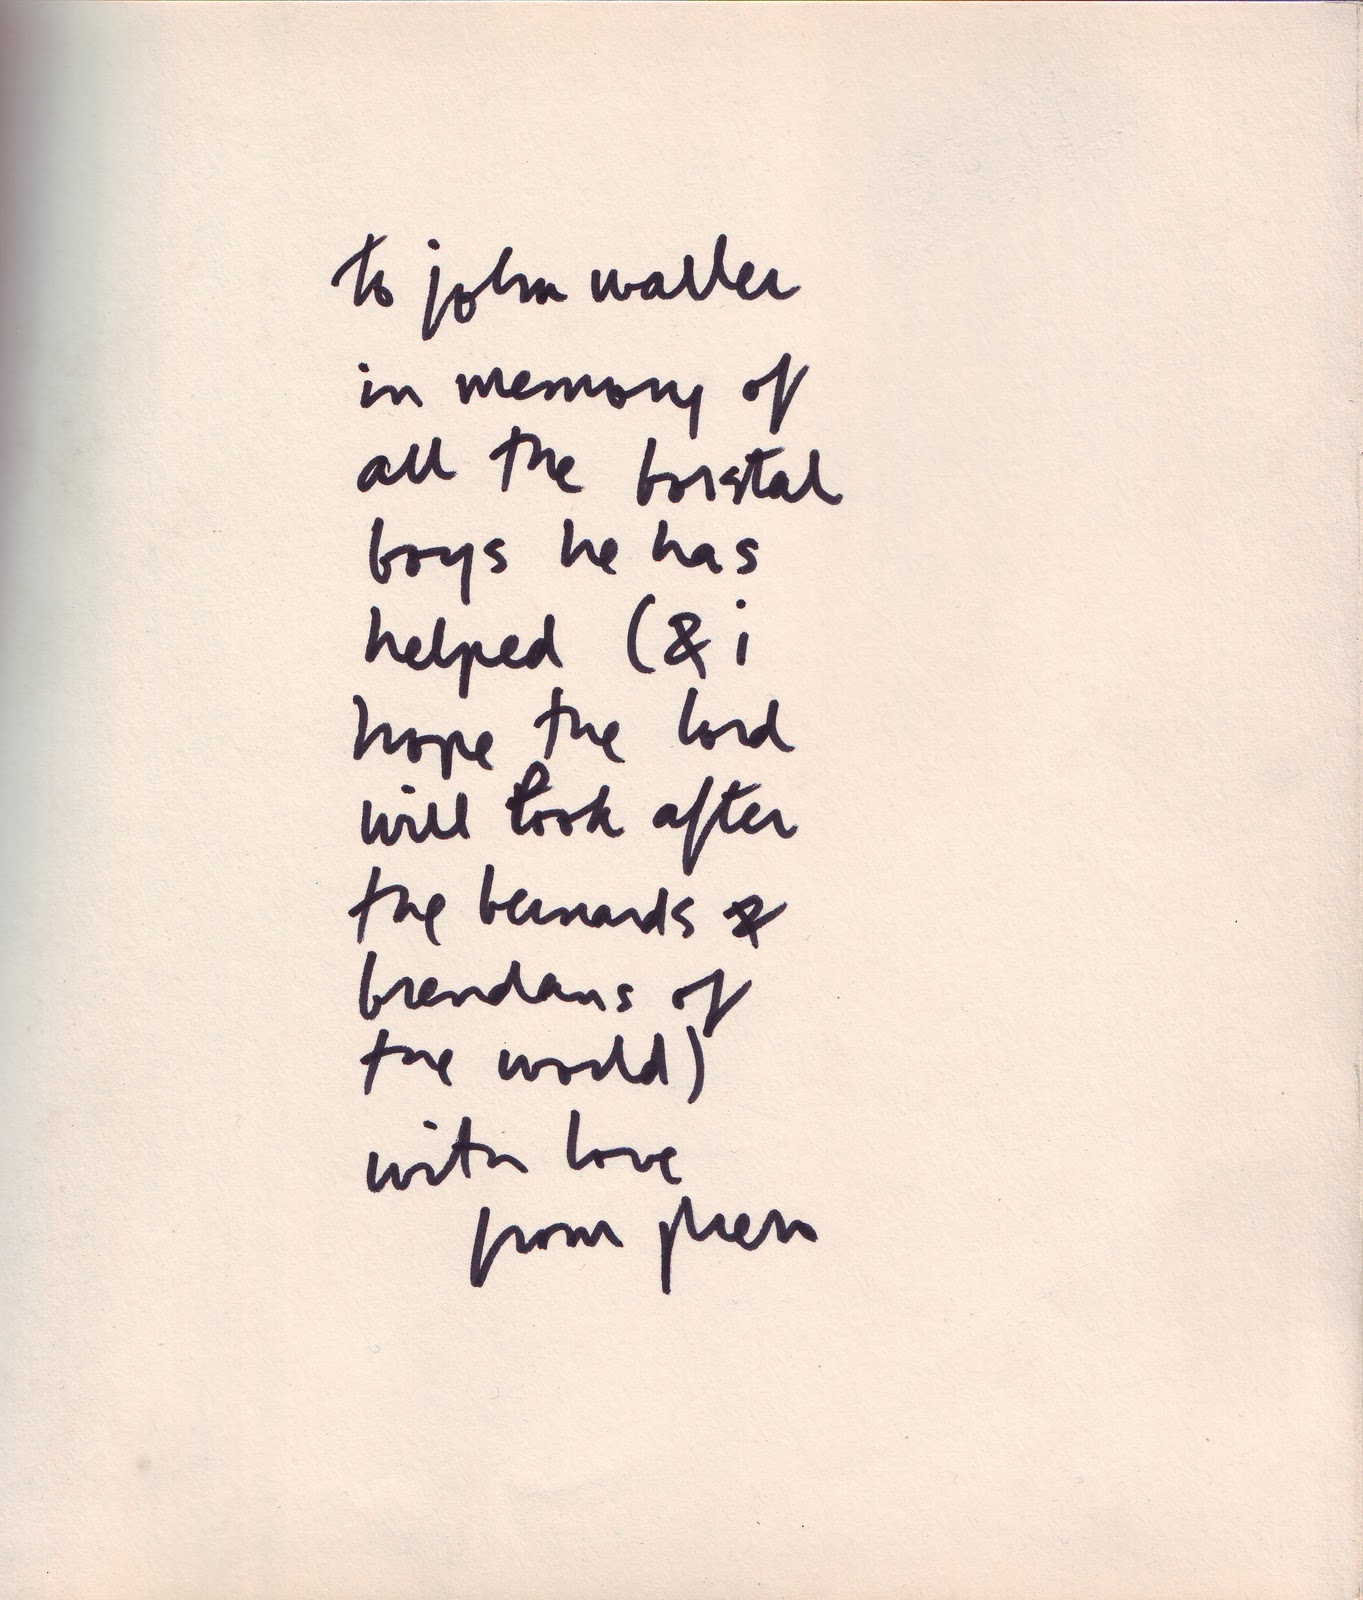 to john waller
in memory of
all the borstal
boys he has
helped (& i
hope the lord
will look after
the bernards &
brendans of
the world)
with love
from